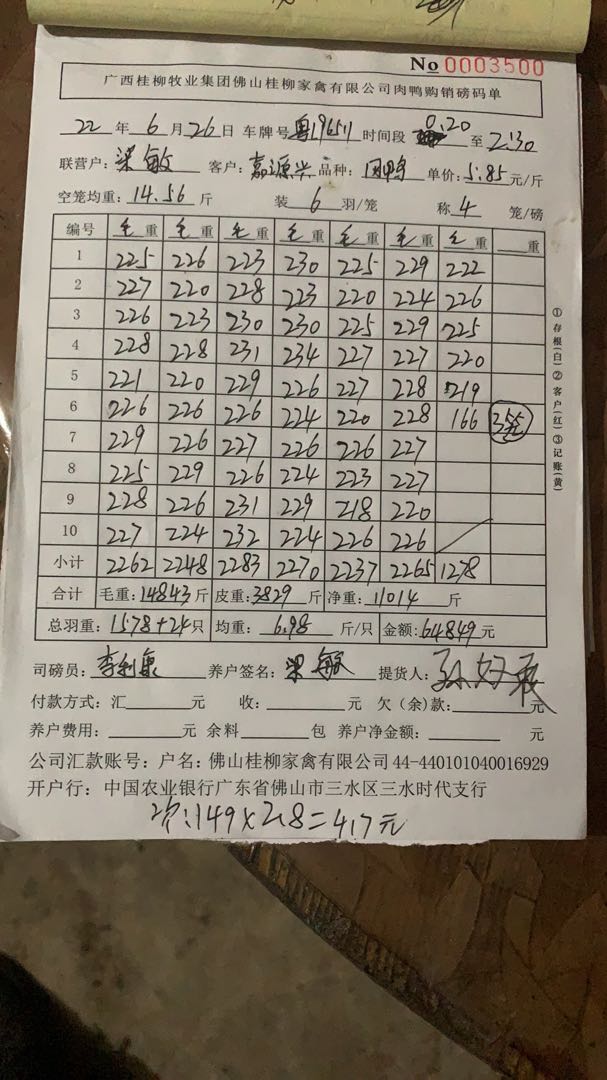 No 0003500
广西桂柳牧业集团佛山桂柳家禽有限公司肉鸭购销磅码单
22 年 6 月 26 日 车牌号 时间段 0:20 至 2:30
联营户: 梁敏 客户: 嘉源兴 品种: 单价: 5.85 元/斤
空笼均重: 14.56 斤 装 6 羽/笼 称 4 笼/磅
编号 毛重 毛重 毛重 毛重 毛重 毛重 毛重 重
1 225 226 223 230 225 229 222
2 227 220 228 223 220 224 226
3 226 223 230 230 225 229 225
4 228 228 231 234 227 227 220
5 221 220 229 226 227 228 219
6 226 226 226 224 220 228 166
7 229 226 227 226 226 227
8 225 229 226 224 223 227
9 228 226 231 229 218 220
10 227 224 232 224 226 226
小计 2262 2248 2283 2270 2237 2265 1278
合计 毛重: 14843 斤 皮重: 3829 斤 净重: 11014 斤
总羽重: 1578+24 只 均重: 6.98 斤/只 金额: 64849 元
司磅员: 李利康 养户签名: 梁敏 提货人:
付款方式: 汇 元 收: 元 欠(余)款: 元
养户费用: 元 余料 包 养户净金额: 元
公司汇款账号: 户名: 佛山桂柳家禽有限公司 44-440101040016929
开户行: 中国农业银行广东省佛山市三水区三水时代支行
次:149×2.8=417元
①存根(白)②客户(红)③记账(黄)